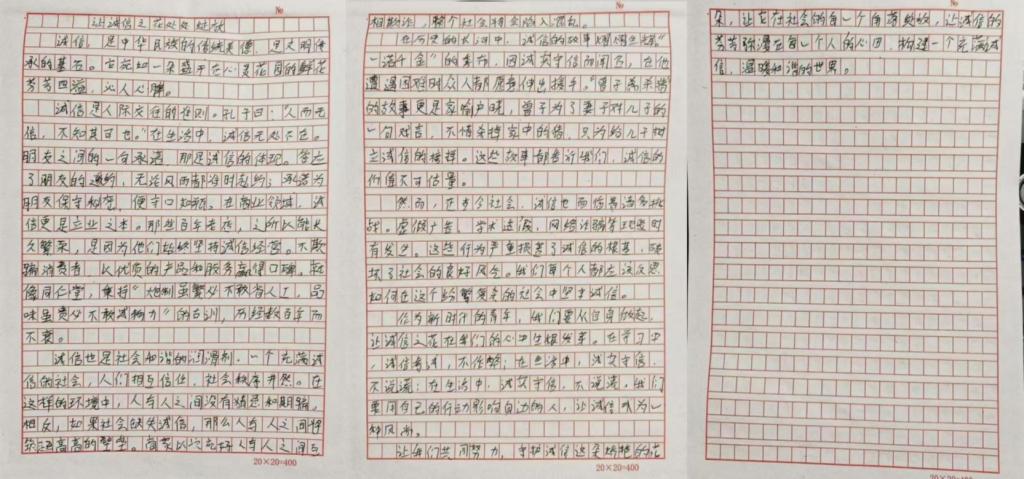 No
让诚信之花处处绽放
诚信，是中华民族的传统美德，是文明传
承的基石。它宛如一朵盛开在心灵花园的鲜花
芳芳四溢，沁人心脾。
诚信是人际交往的准则。孔子曰：“人而无
信，不知其可也。”在生活中，诚信无处不在。
朋友之间的一句承诺，那是诚信的体现。答应
了朋友的邀约，无论风雨都准时赴约；承诺为
朋友保守秘密，便守口如瓶。在商业领域，诚
信更是立业之本。那些百年老店，之所以能长
久繁荣，是因为他们始终坚持诚信经营。不欺
骗消费者，以优质的产品和服务赢得口碑。就
像同仁堂，秉持“炮制虽繁必不敢省人工，品
味虽贵必不敢减物力”的古训，历经数百年而
不衰。
诚信也是社会和谐的润滑剂。一个充满诚
信的社会，人们相互信任，社会秩序井然。在
这样的环境中，人与人之间没有猜忌和欺骗。
相反，如果社会缺失诚信，那么人与人之间将
筑起高高的壁垒。尔虞我诈充斥人与人之间互
20×20=400
No
相欺诈，整个社会将会陷入混乱。
在历史的长河中，诚信的故事熠熠生辉。“
一诺千金”的季布，因诚实守信而闻名，在他
遭遇困难时众人都愿意伸出援手。“曾子杀彘”
的故事更是家喻户晓，曾子为了妻子对儿子的
一句戏言，不惜杀掉家中的猪，只为给儿子树
立诚信的榜样。这些故事都告诉我们，诚信的
价值不可估量。
然而，在当今社会，诚信也面临着诸多挑
战。虚假广告、学术造假、网络诈骗等现象时
有发生。这些行为严重损害了诚信的根基，破
坏了社会的良好风气。我们每个人都应该反思
如何在这个纷繁复杂的社会中坚守诚信。
作为新时代的青年，我们要从自身做起，
让诚信之花在我们的心中生根发芽。在学习中
，诚信考试，不作弊；在生活中，诚实守信，
不说谎；在生活中，诚实守信，不说谎。我们
要用自己的行动影响身边的人，让诚信成为一
种风尚。
让我们共同努力，守护诚信这朵娇艳的花
20×20=400
No
朵，让它在社会的每一个角落绽放，让诚信的
芳芳弥漫在每一个人的心田，构建一个充满诚
信、温暖和谐的世界。
20×20=400